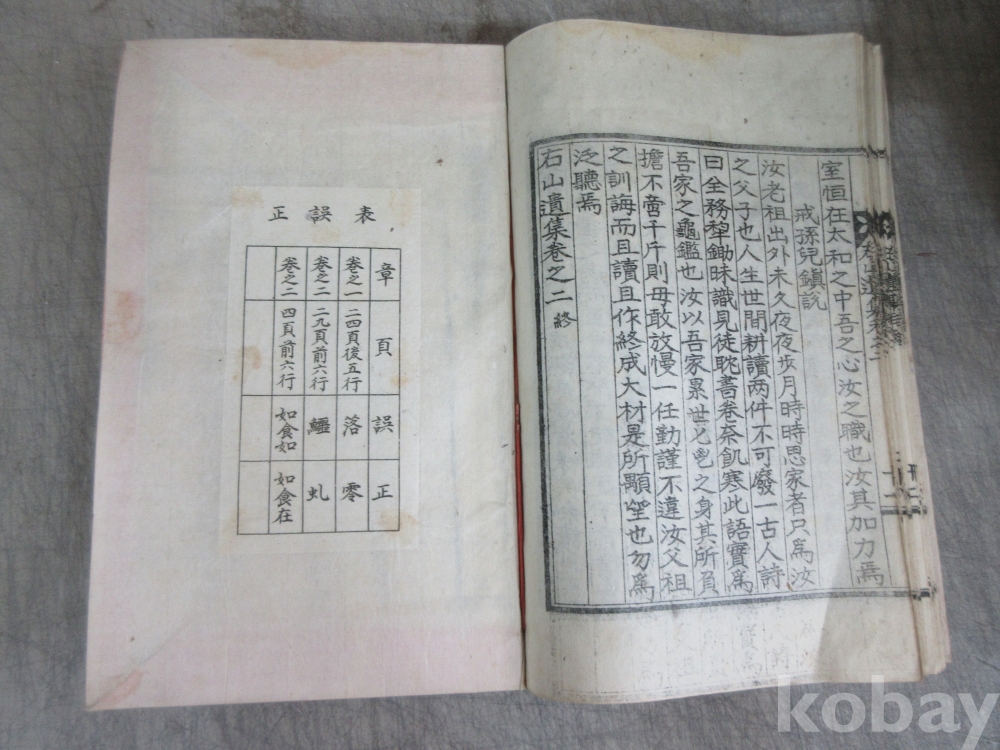 室恒在太和之中吾之心汝之職也汝其加力焉
戒孫兒鎭說
汝老祖出外未久夜夜步月時時思家者只爲汝
之父子也人生世間耕讀两件不可廢一古人詩
曰全務犂鋤昧識見徒耽書卷奈飢寒此語實爲
吾家之龜鑑也汝以吾家累世之身其所負
擔不啻千斤則毋敢放慢一任勤謹不違汝父祖
之訓誨而且讀且作終成大材是所顒望也勿爲
泛聽焉
石山遺集卷之二 終
正誤表
章 頁 誤 正
卷之一 二四頁後五行 落 零
卷之二 二九頁前六行 鱷 虬
卷之二 四頁前六行 如食如 如食在
kobay